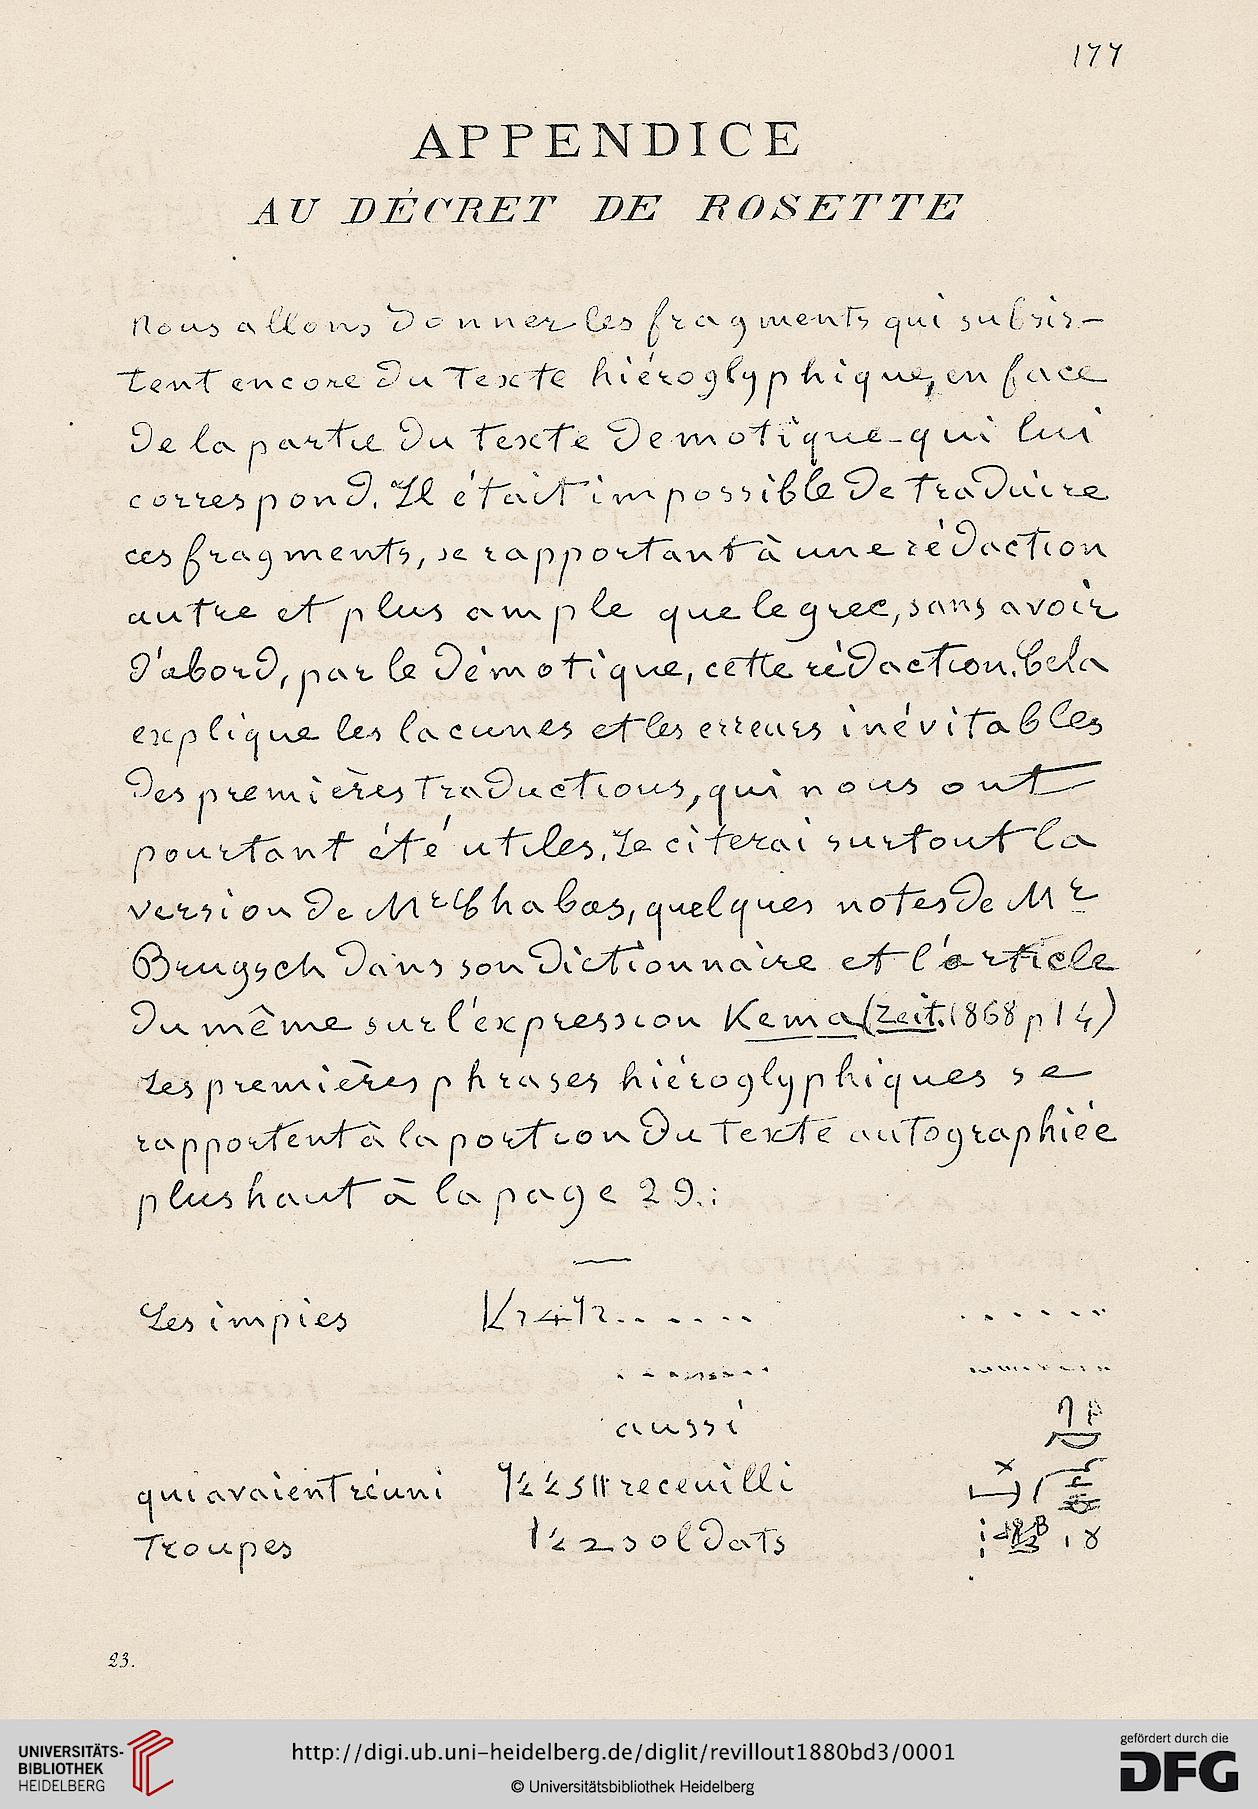 177
APPENDICE
AU DÉCRET DE ROSETTE
Nous allons donner les fragments qui subsis-
tent encore du texte hiéroglyphique, en face
de la partie du texte demotique qui lui
correspond. Il était impossible de traduire
ces fragments, se rapportant à une rédaction
autre et plus ample que le grec, sans avoir
d'abord, par le démotique, cette rédaction. Cela
explique les lacunes et les erreurs inévitables
des premières traductions, qui nous ont
pourtant été utiles. Je citerai surtout la
version de Mr Chabas, quelques notes de Mr
Brugsch dans son dictionnaire et l'article
du même sur l'expression Kema (Zeit. 1868 p 14)
Les premières phrases hiéroglyphiques se
rapportent à la portion du texte autographiée
plus haut à la page 29.:
Les impies
aussi
qui avaient réuni receuilli
Troupes soldats
23.
UNIVERSITÄTS-
BIBLIOTHEK
HEIDELBERG
http://digi.ub.uni-heidelberg.de/diglit/revillout1880bd3/0001
© Universitätsbibliothek Heidelberg
gefördert durch die
DFG